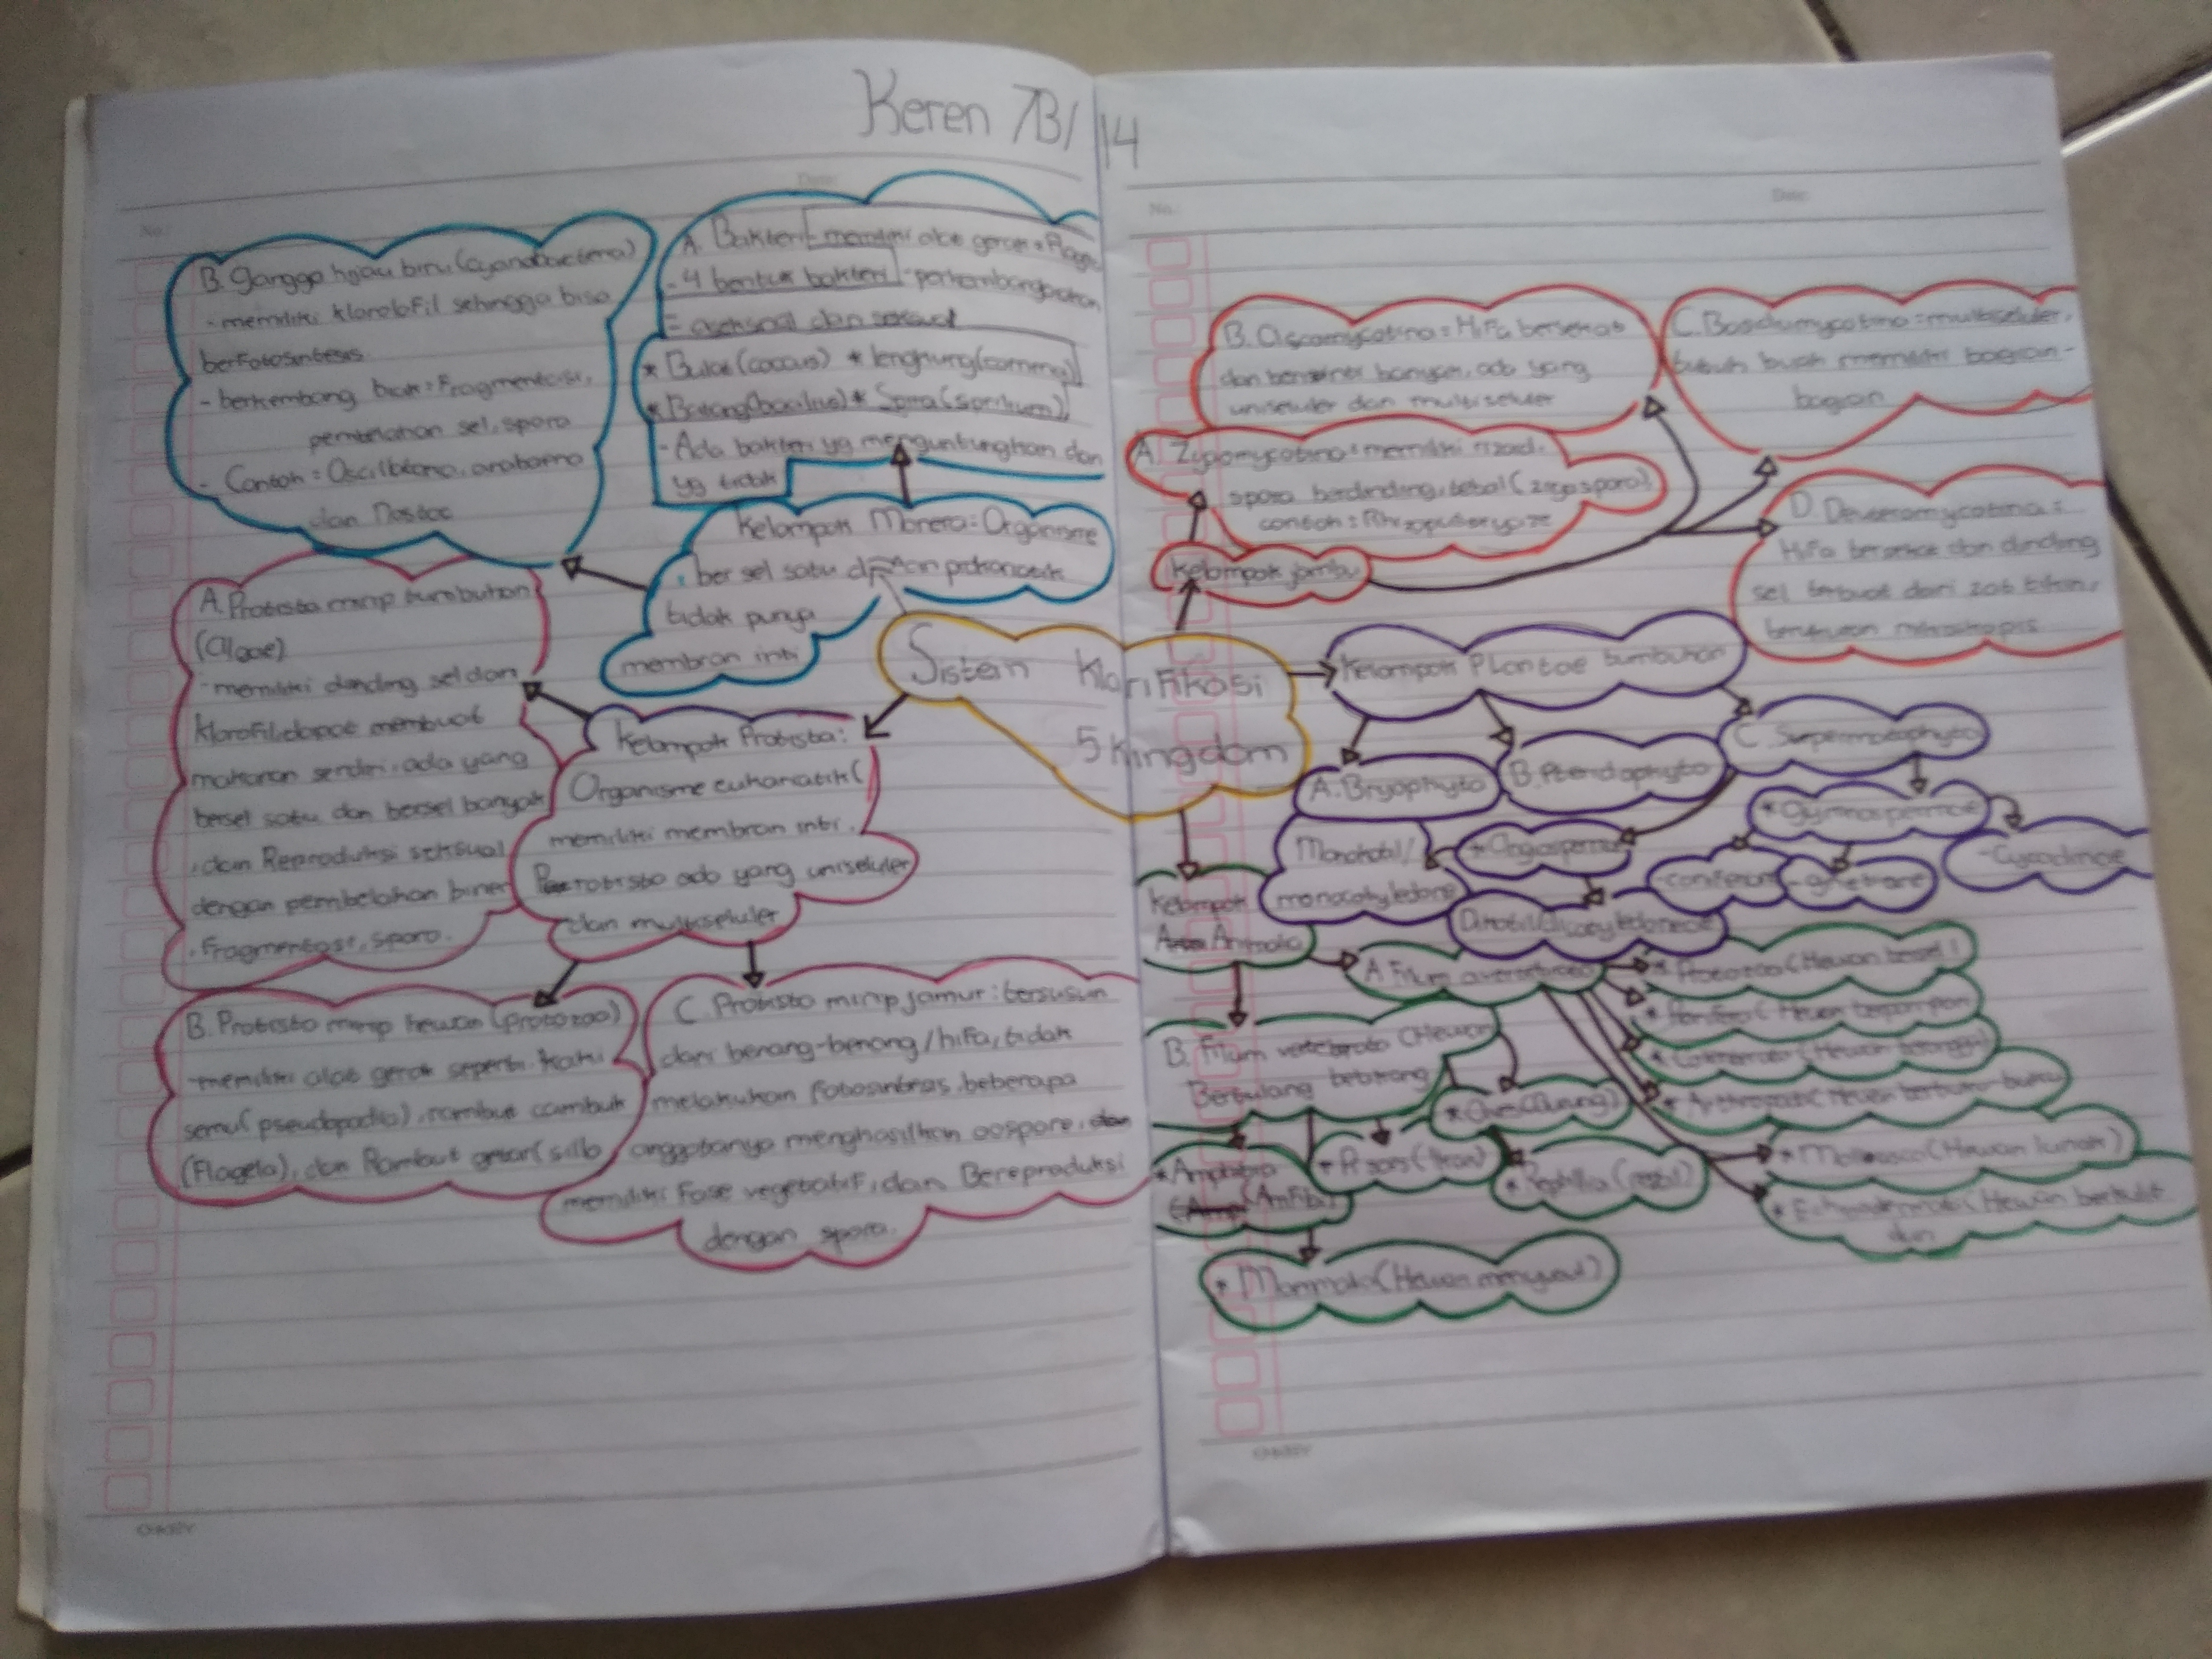 Keren 7B/14
B. ganggo hijau biru (cyanobacteria)
- memiliki klorolofil sehingga bisa
berfotosintesis
- berkembang biak = Fragmentasi,
pembelahan sel, spora
- Contoh = Oscilbtoria, anabaena
dan Nostoc
A. Bakteri - memiliki alat gerak =
- 4 bentuk bakteri - perkembangbiakan
= aseksual dan seksual
* Bulat (coccus) * lengkung (comma)
* Batang (bacilus) * Spira (spirilium)
- Ada bakteri yg menguntungkan dan
yg tidak
Kelompok Monera: Organisme
ber sel satu dan prokariotik
tidak punya
membran inti
A. Protista mirip tumbuhan
(Algae)
- memiliki dinding sel dan
klorofil, dapat membuat
makanan sendiri, ada yang
bersel satu dan bersel banyak
, dan Reproduksi seksual
dengan pembelahan biner
, Fragmentasi, spora.
Kelompok Protista:
Organisme eukariotik (
memiliki membran inti.
Protista ada yang uniseluler
dan multiseluler
B. Protista mirip hewan (protozoa)
- memiliki alat gerak seperti kaki
semu (pseudopodia), rambut cambuk
(Flagela), dan Rambut getar (silia
C. Protista mirip jamur: tersusun
dari benang-benang/hifa, tidak
melakukan fotosintesis, beberapa
anggotanya menghasilkan oospora, dan
memiliki Fase vegetatif, dan Bereproduksi
dengan spora.
Sistem Klarifikasi
5 Kingdom
B. Ascomycotina = Hifa bersekat
dan berinti banyak, ada yang
uniseluler dan multiseluler
C. Basidiomycotina = multiseluler,
tubuh buah memiliki bagian-
bagian
A. Zygomycotina = memiliki rizoid,
spora berdinding tebal (zigospora)
contoh = Rhizopus oryzae
Kelompok jambu
D. Deuteromycotina =
Hifa bersekat dan dinding
sel terbuat dari zat kitin,
berukuran mikroskopis
Kelompok Plantae tumbuhan
A. Bryophyta
B. Pteridophyta
C. Spermatophyta
* Gymnospermae
- Cycadinae
- coniferae
- gnetinae
* Angiospermae
Monokotil/
monocotyledone
Dikotil/Dicotyledoneae
Kelompok
Animalia
A. Filum avertebrata
* Protozoa (Hewan bersel 1
* Porifera (Hewan berpori
* Coelenterata (Hewan berongga)
* Arthropoda (Hewan berbuku-buku)
* Mollusca (Hewan lunak)
* Echinodermata (Hewan berkulit
duri
B. Filum vertebrata (Hewan
Bertulang belakang
* Aves (Burung)
* Pisces (Ikan)
* Reptilia (reptil)
* Amphibia
(Amfibi)
* Mammalia (Hewan menyusui)